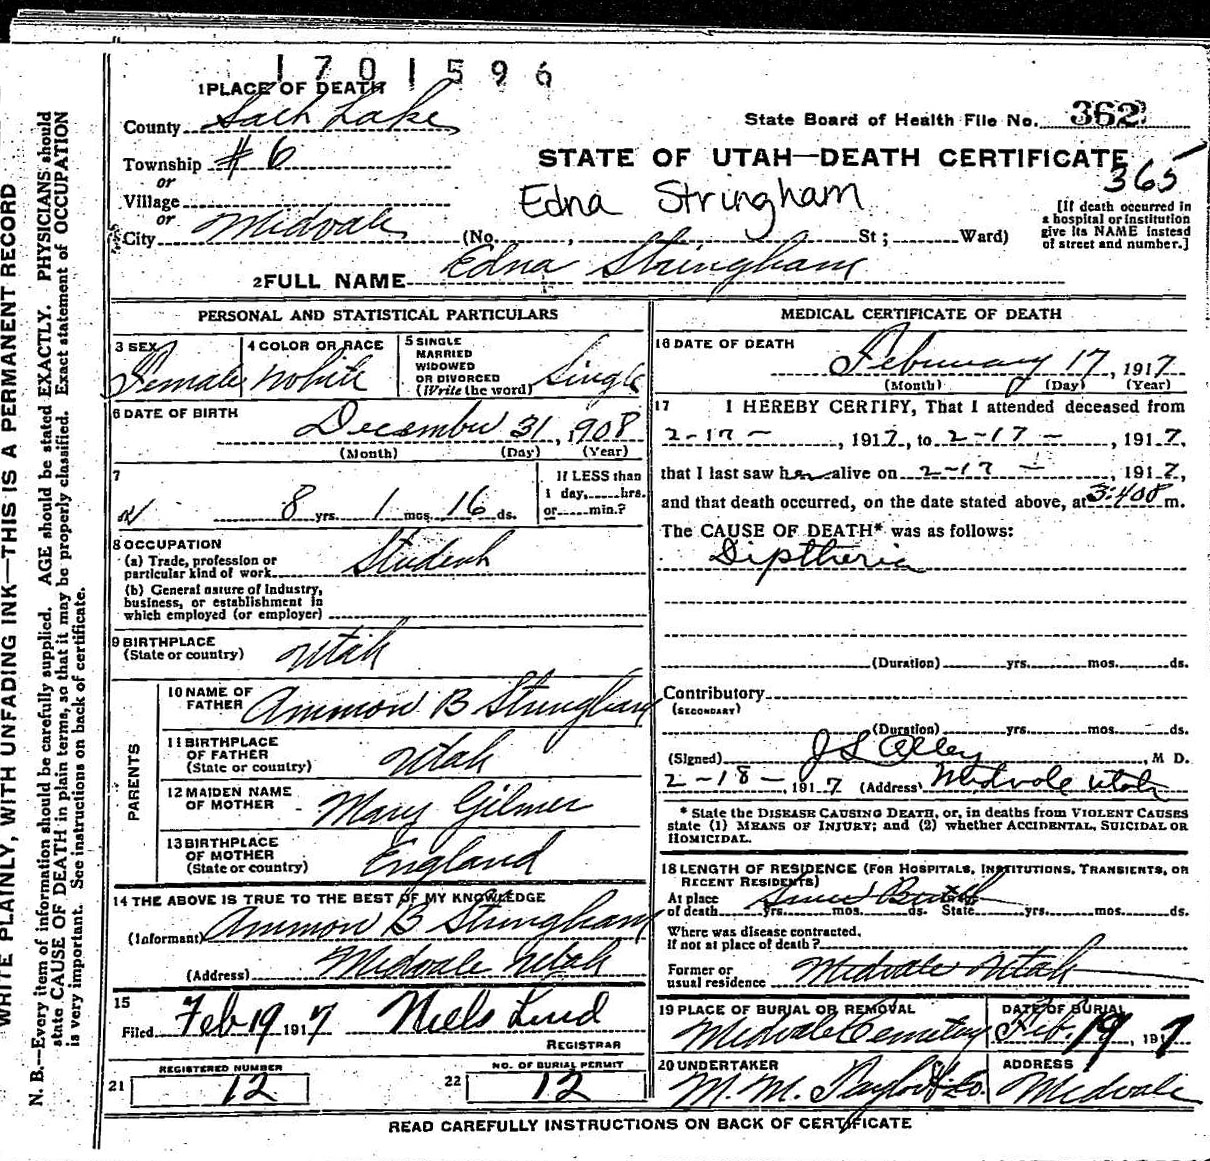 1701596
1 PLACE OF DEATH
County Salt Lake
State Board of Health File No. 362
Township #6
STATE OF UTAH—DEATH CERTIFICATE
365
or
Village
Edna Stringham
or
City Midvale (No. , St ; Ward)
[If death occurred in
a hospital or institution
give its NAME instead
of street and number.]
2 FULL NAME Edna Stringham
PERSONAL AND STATISTICAL PARTICULARS
3 SEX
Female
4 COLOR OR RACE
White
5 SINGLE
MARRIED
WIDOWED
OR DIVORCED
(Write the word) Single
6 DATE OF BIRTH
December 31, 1908
(Month) (Day) (Year)
7
8 yrs. 1 mos. 16 ds.
If LESS than
1 day, hrs.
or min.?
8 OCCUPATION
(a) Trade, profession or
particular kind of work Student
(b) General nature of Industry,
business, or establishment in
which employed (or employer)
9 BIRTHPLACE
(State or country) Utah
PARENTS
10 NAME OF
FATHER Ammon B Stringham
11 BIRTHPLACE
OF FATHER
(State or country) Utah
12 MAIDEN NAME
OF MOTHER Mary Gilmer
13 BIRTHPLACE
OF MOTHER
(State or country) England
14 THE ABOVE IS TRUE TO THE BEST OF MY KNOWLEDGE
(Informant) Ammon B Stringham
(Address) Midvale Utah
15
Filed Feb 19 1917 Niels Lind
REGISTRAR
REGISTERED NUMBER
21 12
NO. OF BURIAL PERMIT
22 12
MEDICAL CERTIFICATE OF DEATH
16 DATE OF DEATH
February 17, 1917
(Month) (Day) (Year)
17 I HEREBY CERTIFY, That I attended deceased from
2-17-, 1917, to 2-17-, 1917,
that I last saw her alive on 2-17-, 1917,
and that death occurred, on the date stated above, at 3:40 m.
The CAUSE OF DEATH* was as follows:
Diptheria
(Duration) yrs. mos. ds.
Contributory
(SECONDARY)
(Duration) yrs. mos. ds.
(Signed) J L Alley, M D.
2-18-, 1917 (Address) Midvale Utah
* State the DISEASE CAUSING DEATH, or, in deaths from VIOLENT CAUSES
state (1) MEANS OF INJURY; and (2) whether ACCIDENTAL, SUICIDAL OR
HOMICIDAL.
18 LENGTH OF RESIDENCE (FOR HOSPITALS, INSTITUTIONS, TRANSIENTS, OR
RECENT RESIDENTS)
At place Since Birth
of death yrs. mos. ds. State yrs. mos. ds.
Where was disease contracted,
if not at place of death?
Former or
usual residence Midvale Utah
19 PLACE OF BURIAL OR REMOVAL
Midvale Cemetery
DATE OF BURIAL
Feb. 19, 1917
20 UNDERTAKER
M. M. Taylor & Co.
ADDRESS
Midvale
READ CAREFULLY INSTRUCTIONS ON BACK OF CERTIFICATE
WRITE PLAINLY, WITH UNFADING INK—THIS IS A PERMANENT RECORD
N. B.—Every item of information should be carefully supplied. AGE should be stated EXACTLY. PHYSICIANS should
state CAUSE OF DEATH in plain terms, so that it may be properly classified. Exact statement of OCCUPATION
is very important. See instructions on back of certificate.